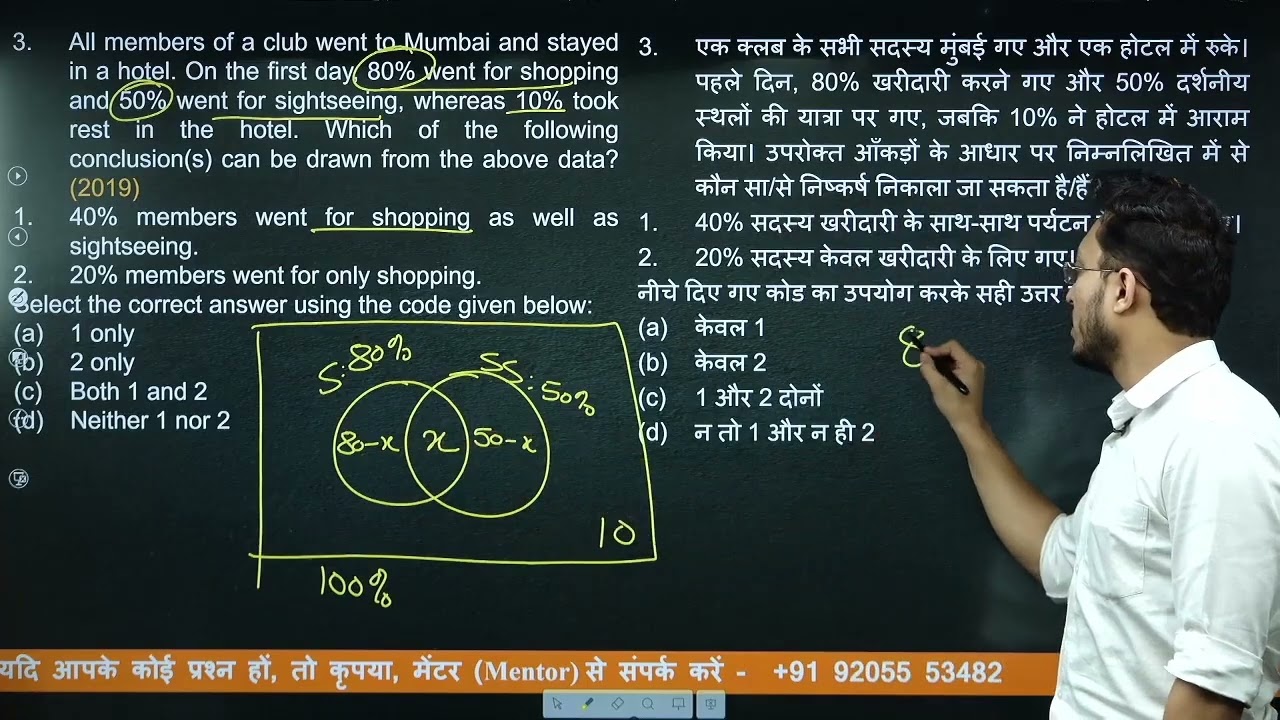 3. All members of a club went to Mumbai and stayed
in a hotel. On the first day, 80% went for shopping
and 50% went for sightseeing, whereas 10% took
rest in the hotel. Which of the following
conclusion(s) can be drawn from the above data?
(2019)
1. 40% members went for shopping as well as
sightseeing.
2. 20% members went for only shopping.
Select the correct answer using the code given below:
(a) 1 only
(b) 2 only
(c) Both 1 and 2
(d) Neither 1 nor 2
S: 80%
SS: 50%
80-x
x
50-x
10
100%
3. एक क्लब के सभी सदस्य मुंबई गए और एक होटल में रुके।
पहले दिन, 80% खरीदारी करने गए और 50% दर्शनीय
स्थलों की यात्रा पर गए, जबकि 10% ने होटल में आराम
किया। उपरोक्त आँकड़ों के आधार पर निम्नलिखित में से
कौन सा/से निष्कर्ष निकाला जा सकता है/हैं
1. 40% सदस्य खरीदारी के साथ-साथ पर्यटन
2. 20% सदस्य केवल खरीदारी के लिए गए।
नीचे दिए गए कोड का उपयोग करके सही उत्तर
(a) केवल 1
(b) केवल 2
(c) 1 और 2 दोनों
(d) न तो 1 और न ही 2
8
यदि आपके कोई प्रश्न हों, तो कृपया, मेंटर (Mentor) से संपर्क करें - +91 92055 53482